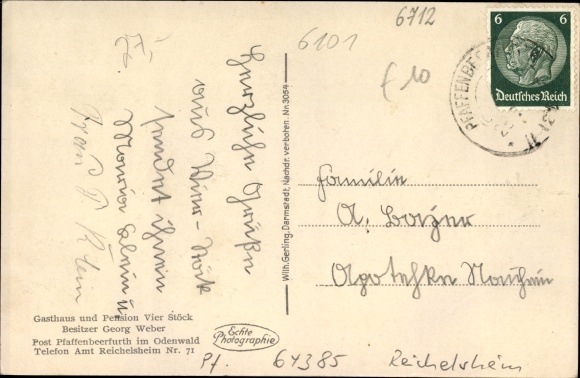 6712
6101
£ 10
6 6
Deutsches Reich
PFAFFENBE
Herzliche Grüße
aus Vier-Stöck
sendet Ihnen
Maria
Frau
Wilh. Gerling, Darmstadt, Nachdr. verboten. Nr. 3054
Familie
A.
Apotheke
Gasthaus und Pension Vier Stöck
Besitzer Georg Weber
Post Pfaffenbeerfurth im Odenwald
Telefon Amt Reichelsheim Nr. 71
Echte
Photographie
Pf. 64385 Reichelsheim